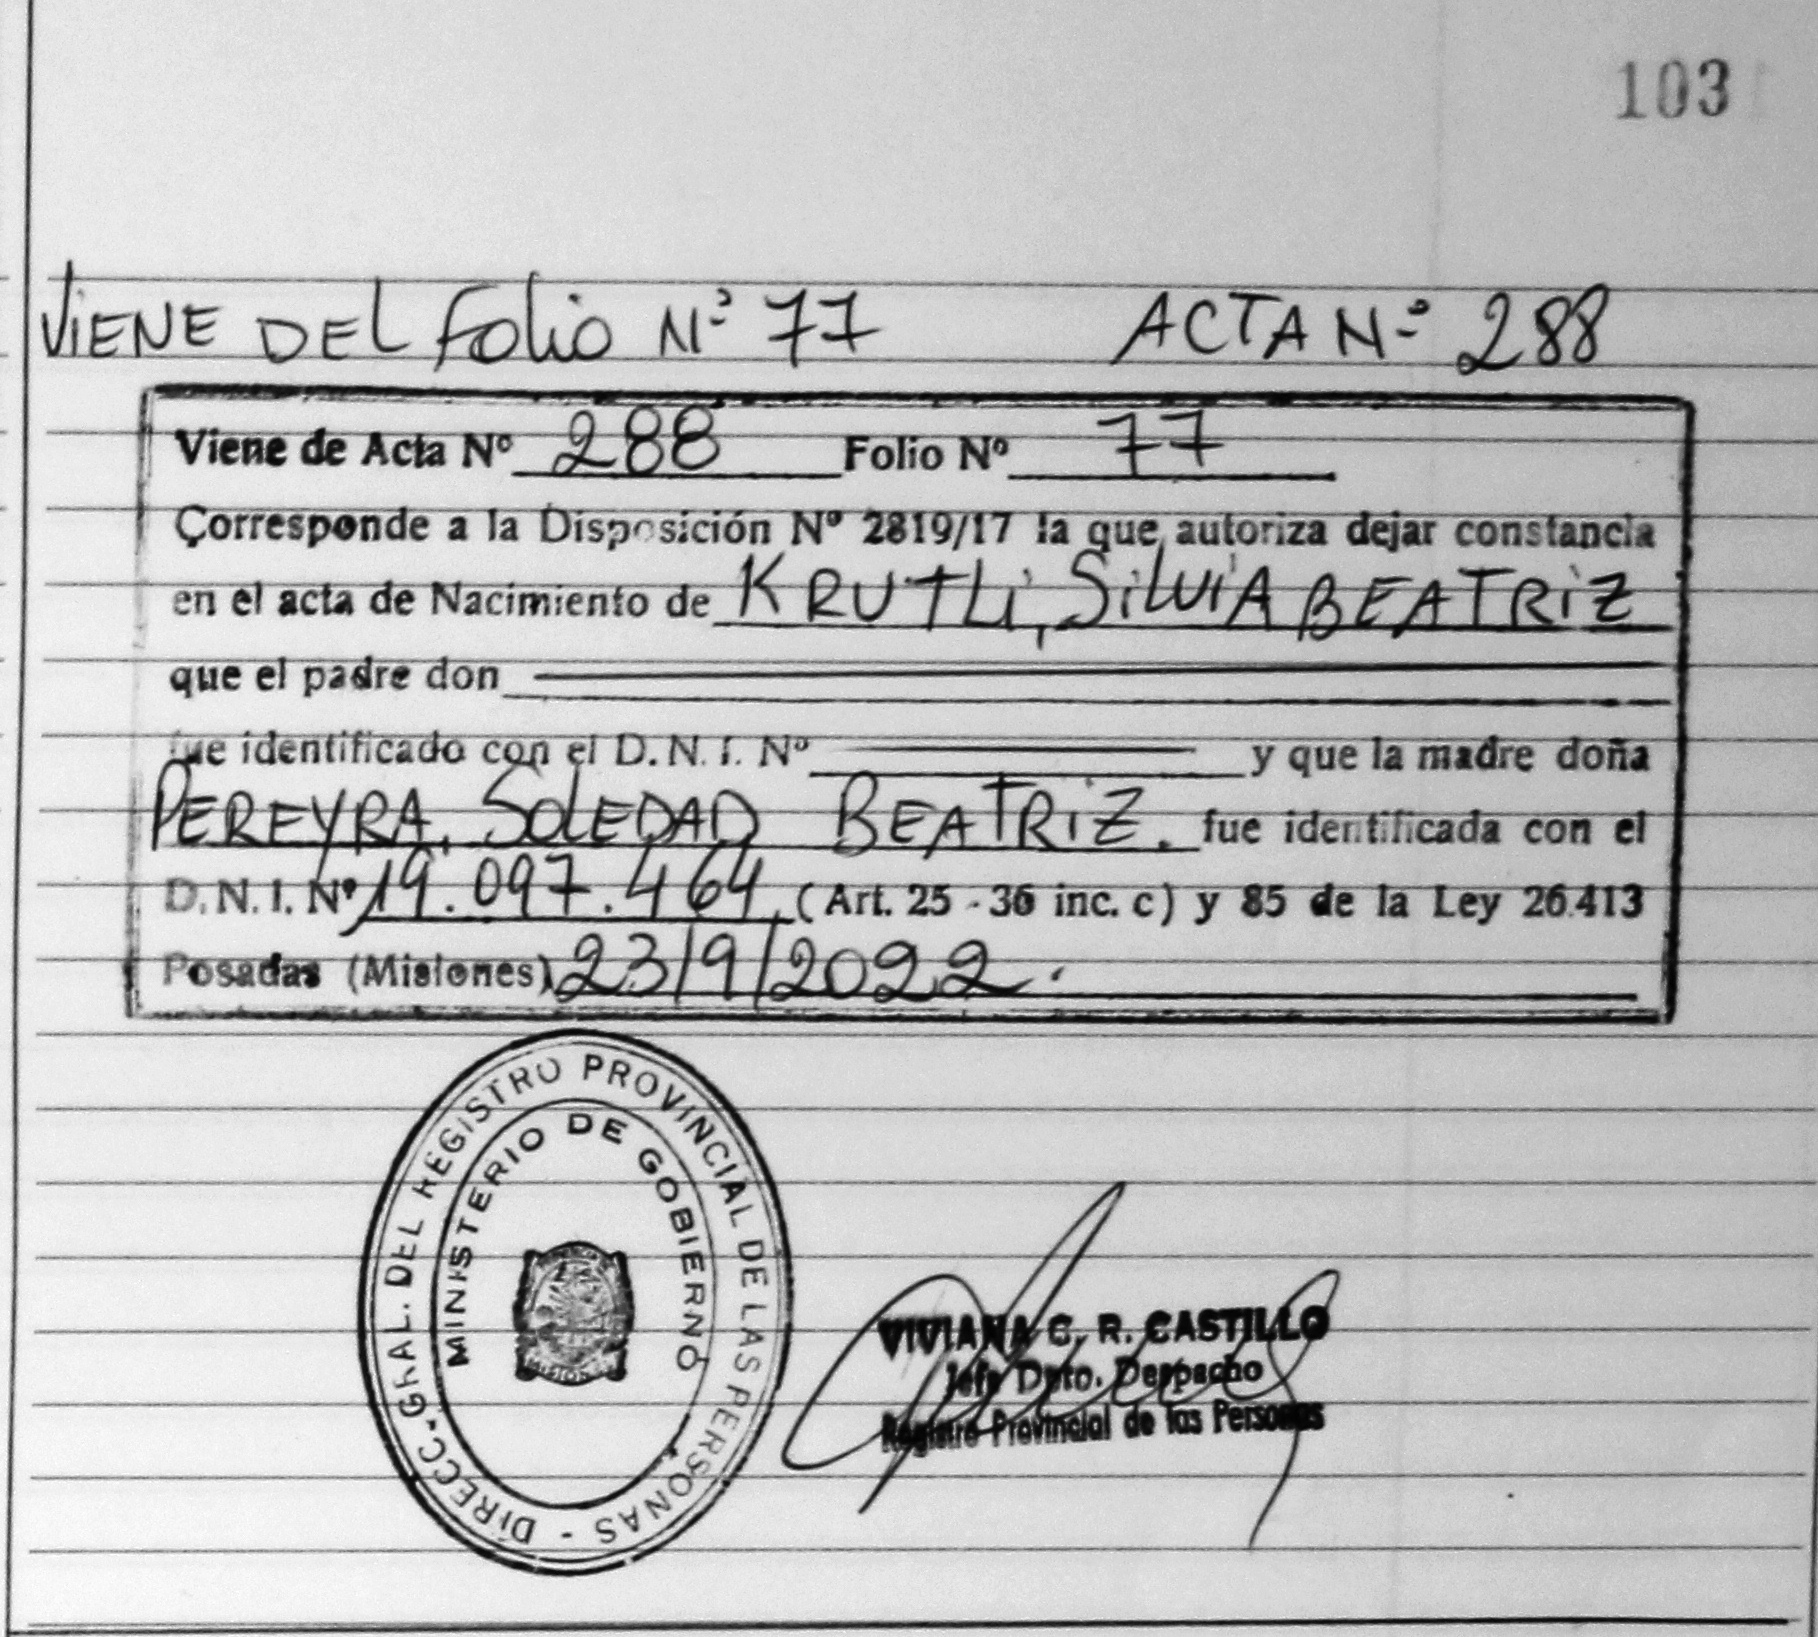 103
VIENE DEL Folio Nº 77 ACTA Nº 288
Viene de Acta Nº 288 Folio Nº 77
Corresponde a la Disposición Nº 2819/17 la que autoriza dejar constancia
en el acta de Nacimiento de KRUTLi, SilviA BEATRiZ
que el padre don
fue identificado con el D.N.I. Nº y que la madre doña
PEREYRA, SOLEDAD BEATRiZ. fue identificada con el
D.N.I. Nº 19.097.464, (Art. 25 - 36 inc. c) y 85 de la Ley 26.413
Posadas (Misiones) 23/9/2022.
DIRECC. GRAL. DEL REGISTRO PROVINCIAL DE LAS PERSONAS -
MINISTERIO DE GOBIERNO
MISIONES
VIVIANA C. R. CASTILLO
Jefe Dpto. Despacho
Registro Provincial de las Personas